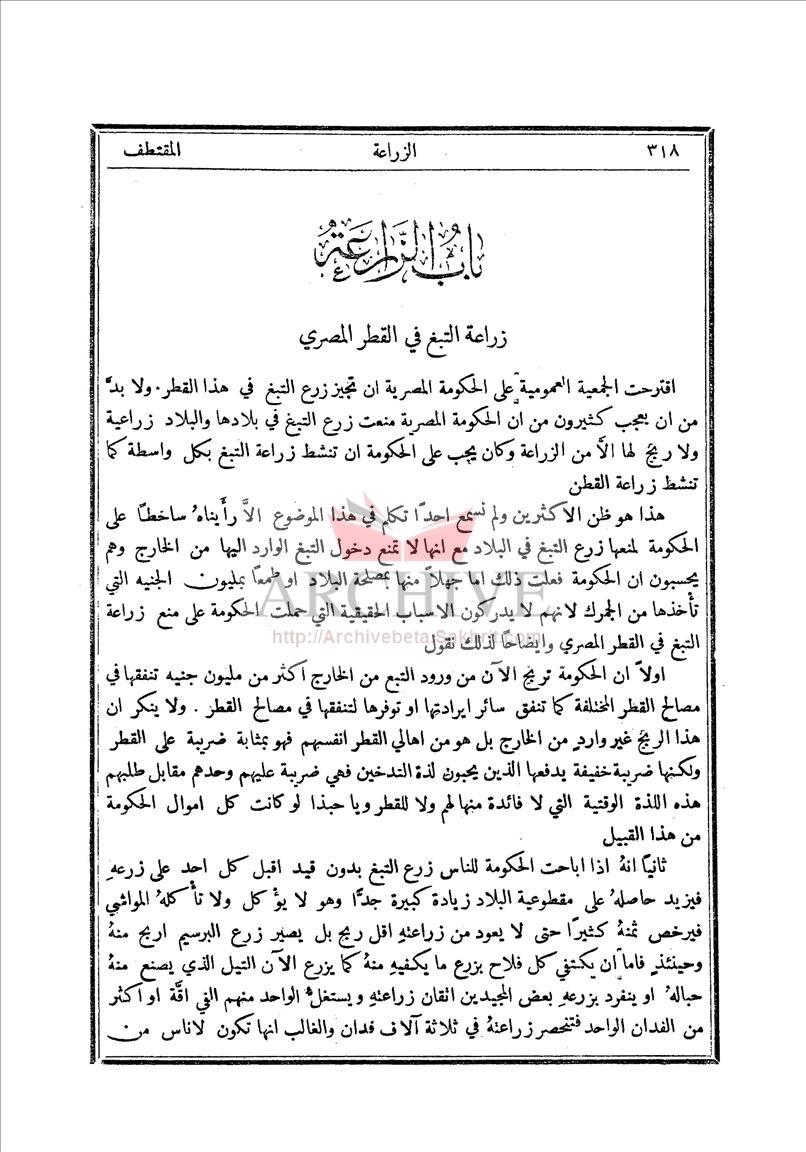 ٣١٨ الزراعة المقتطف
باب الزراعة
زراعة التبغ في القطر المصري
اقترحت الجمعية العمومية على الحكومة المصرية ان تجيز زرع التبغ في هذا القطر. ولا بدَّ
من ان يعجب كثيرون من ان الحكومة المصرية منعت زرع التبغ في بلادها والبلاد زراعية
ولا ربح لها الاَّ من الزراعة وكان يجب على الحكومة ان تنشط زراعة التبغ بكل واسطة كما
تنشط زراعة القطن
هذا هو ظن الاكثرين ولم نسمع احدًا تكلم في هذا الموضوع الاَّ رأيناهُ ساخطًا على
الحكومة لمنعها زرع التبغ في البلاد مع انها لا تمنع دخول التبغ الوارد اليها من الخارج وهم
يحسبون ان الحكومة فعلت ذلك اما جهلاً منها بمصلحة البلاد او طمعًا بمليون الجنيه التي
تأخذها من الجمرك لانهم لا يدركون الاسباب الحقيقية التي حملت الحكومة على منع زراعة
التبغ في القطر المصري وايضاحًا لذلك نقول
اولاً ان الحكومة تربح الآن من ورود التبع من الخارج اكثر من مليون جنيه تنفقها في
مصالح القطر المختلفة كما تنفق سائر ايرادتها او توفرها لتنفقها في مصالح القطر. ولا ينكر ان
هذا الربح غير واردٍ من الخارج بل هو من اهالي القطر انفسهم فهو بمثابة ضريبة على القطر
ولكنها ضريبة خفيفة يدفعها الذين يحبون لذة التدخين فهي ضريبة عليهم وحدهم مقابل طلبهم
هذه اللذة الوقتية التي لا فائدة منها لهم ولا للقطر ويا حبذا لو كانت كل اموال الحكومة
من هذا القبيل
ثانيًا انهُ اذا اباحت الحكومة للناس زرع التبغ بدون قيد اقبل كل احد على زرعهِ
فيزيد حاصلهُ على مقطوعية البلاد زيادة كبيرة جدًّا وهو لا يؤكل ولا تأكلهُ المواشي
فيرخص ثمنهُ كثيرًا حتى لا يعود من زراعتهِ اقل ربح بل يصير زرع البرسيم اربح منهُ
وحينئذٍ فاما ان يكتفي كل فلاح بزرع ما يكفيهِ منهُ كما يزرع الآن التيل الذي يصنع منهُ
حبالهُ او ينفرد بزرعهِ بعض المجيدين اتقان زراعتهِ ويستغل الواحد منهم الفي اقَّة او اكثر
من الفدان الواحد فتنحصر زراعتهُ في ثلاثة آلاف فدان والغالب انها تكون لاناس من
ARCHIVE
http://Archivebeta.Sakhrit.com